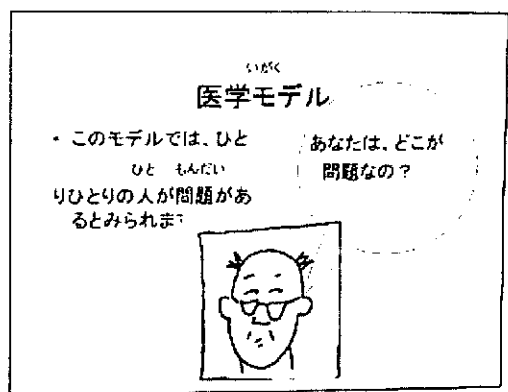 いがく
医学モデル
・ このモデルでは、ひと
ひと もんだい
りひとりの人が問題があ
るとみられま
あなたは、どこが
問題なの？